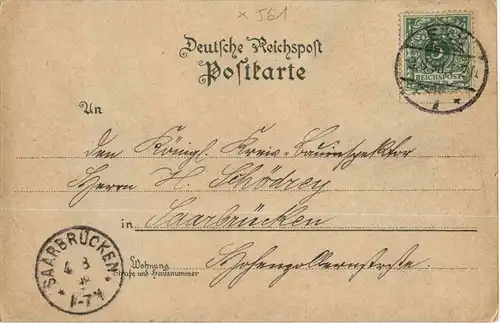 x 561
Deutsche Reichspost
Postkarte
5
REICHSPOST
An
den Königl. Kreis-Bauinspektor
Herrn H. Schödrey
in Saarbrücken
Wohnung
Straße und Hausnummer
Hohenzollernstraße.
SAARBRÜCKEN
4 3